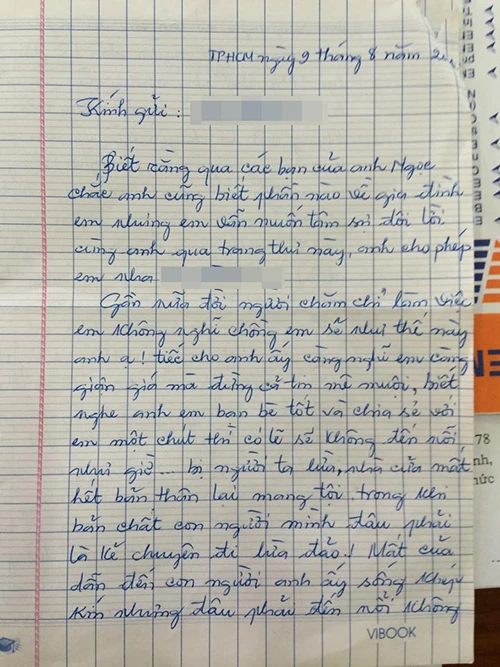 TPHCM ngày 9 tháng 8 năm
Kính gửi :
Biết rằng qua các bạn của anh Ngọc
chắc anh cũng biết phần nào về gia đình
em nhưng em vẫn muốn tâm sự đôi lời
cùng anh qua trang thư này, anh cho phép
em nha
Gần nửa đời người chăm chỉ làm việc
em không nghĩ chồng em sẽ như thế này
anh ạ! tiếc cho anh ấy càng nghĩ em càng
giận giá mà đừng cả tin mê muội, biết
nghe anh em bạn bè tốt và chia sẻ với
em một chút thì có lẽ sẽ không đến nỗi
như giờ... bị người ta lừa, nhà cửa mất
hết bản thân lại mang tội. trong khi
bản chất con người mình đâu phải
là kẻ chuyên đi lừa đảo! Mất của
dẫn đến con người anh ấy sống khép
kín nhưng đâu phải đến nỗi không
VIBOOK
78
nh,
hức